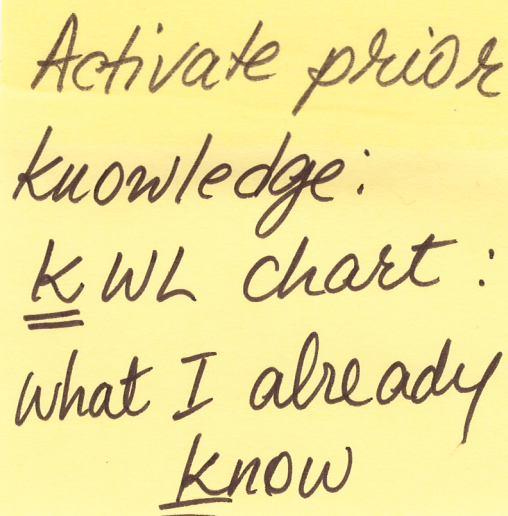 Activate prior
knowledge:
KWL chart:
what I already
know